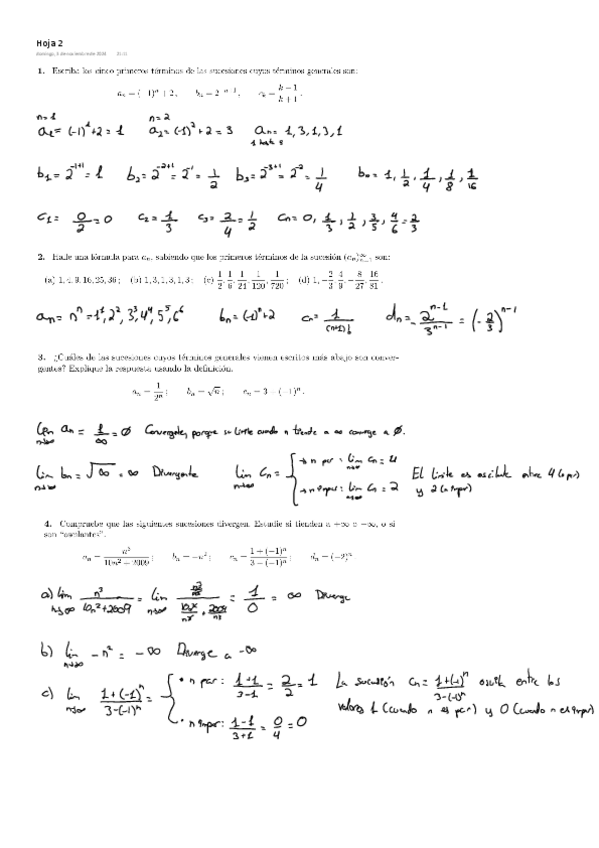 Hoja 2
1. Escriba los cinco primeros términos de las sucesiones cuyos términos generales son:
aₙ = (−1)ⁿ + 2, bₙ = 2⁻ⁿ⁺¹, cₖ = (k−1)/(k+1).
n=1 n=2
a₁ = (-1)¹+2 = 1 a₂ = (-1)²+2 = 3 aₙ = 1,3,1,3,1
b₁ = 2⁻¹⁺¹ = 1 b₂ = 2⁻²⁺¹ = 2⁻¹ = 1/2 b₃ = 2⁻³⁺¹ = 2⁻² = 1/4 bₙ = 1, 1/2, 1/4, 1/8, 1/16
c₁ = 0/2 = 0 c₂ = 1/3 c₃ = 2/4 = 1/2 cₙ = 0, 1/3, 1/2, 3/5, 4/6 = 2/3
2. Halle una fórmula para aₙ, sabiendo que los primeros términos de la sucesión (aₙ)∞ₙ₌₁ son:
(a) 1, 4, 9, 16, 25, 36; (b) 1, 3, 1, 3, 1, 3; (c) 1/2, 1/6, 1/24, 1/120, 1/720; (d) 1, −2/3, 4/9, −8/27, 16/81.
aₙ = nⁿ = 1¹, 2², 3³, 4⁴, 5⁵, 6⁶ bₙ = (-1)ⁿ+2 cₙ = 1/(n+1)! dₙ = -2ⁿ⁻¹/3ⁿ⁻¹ = (-2/3)ⁿ⁻¹
3. ¿Cuáles de las sucesiones cuyos términos generales vienen escritos más abajo son conver-
gentes? Explique la respuesta usando la definición.
aₙ = 1/2ⁿ; bₙ = √n; cₙ = 3 + (−1)ⁿ.
lim n→∞ aₙ = 1/∞ = 0 Convergente, porque su límite cuando n tiende a ∞ converge a 0.
lim n→∞ bₙ = √∞ = ∞ Divergente lim n→∞ cₙ = → n par: lim n→∞ cₙ = 4 El límite es oscilante entre 4 (n par)
→ n impar: lim n→∞ cₙ = 2 y 2 (n impar)
4. Compruebe que las siguientes sucesiones divergen. Estudie si tienden a +∞ o −∞, o si
son "oscilantes".
aₙ = n³/(10n² + 2009); bₙ = −n²; cₙ = (1 + (−1)ⁿ)/(3 − (−1)ⁿ); dₙ = (−2)ⁿ
a) lim n→∞ n³/(10n²+2009) = lim n→∞ (n³/n³)/(10n²/n³ + 2009/n³) = 1/0 = ∞ Diverge
b) lim n→∞ -n² = -∞ Diverge a -∞
c) lim n→∞ (1+(-1)ⁿ)/(3-(-1)ⁿ) = • n par: (1+1)/(3-1) = 2/2 = 1 La sucesión cₙ = (1+(-1)ⁿ)/(3-(-1)ⁿ) oscila entre los
• n impar: (1-1)/(3+1) = 0/4 = 0 valores 1 (cuando n es par) y 0 (cuando n es impar)